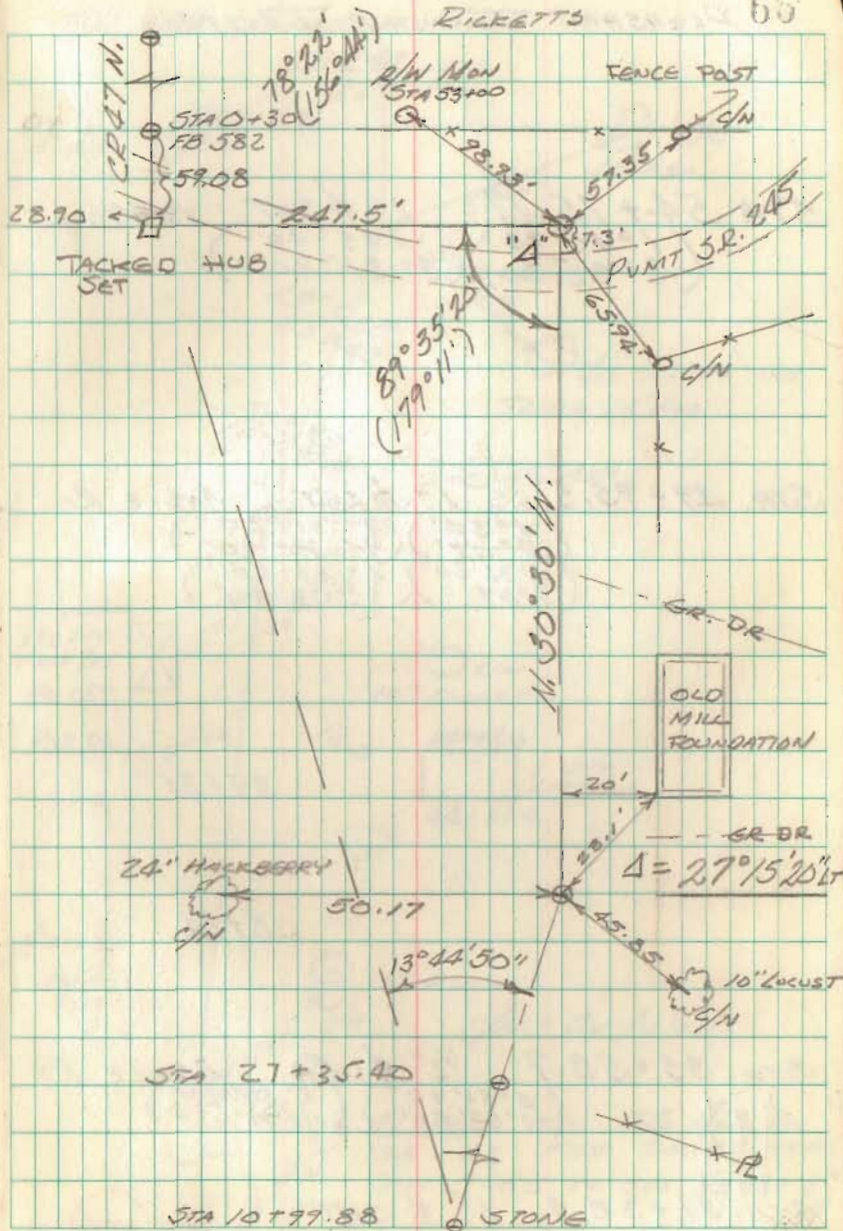 RICKETTS
CR 47 N.
STA 0+30
FB 582
59.08
78° 22'
(156° 44')
R/W MON
STA 53+00
FENCE POST
C/N
98.93'
57.35
28.90
247.5'
"A"
7.3'
PVMT S.R. 245
TACKED HUB
SET
89° 35' 20"
(179° 11')
65.94'
C/N
N. 30° 30' W.
GR. DR
OLD
MILL
FOUNDATION
20'
28.1'
GR DR
Δ = 27° 15' 20" LT
24" HACKBERRY
C/N
50.17
45.85
10" LOCUST
C/N
13° 44' 50"
STA 27+35.40
STA 10+99.88
STONE